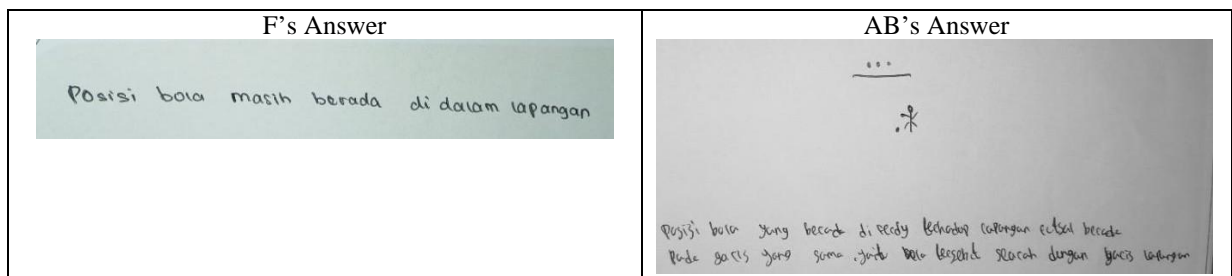 F's Answer
Posisi bola masih berada di dalam lapangan
AB's Answer
Posisi bola yang berada di terhadap lapangan futsal berada
pada garis yang sama, yaitu bola tersebut searah dengan garis lapangan